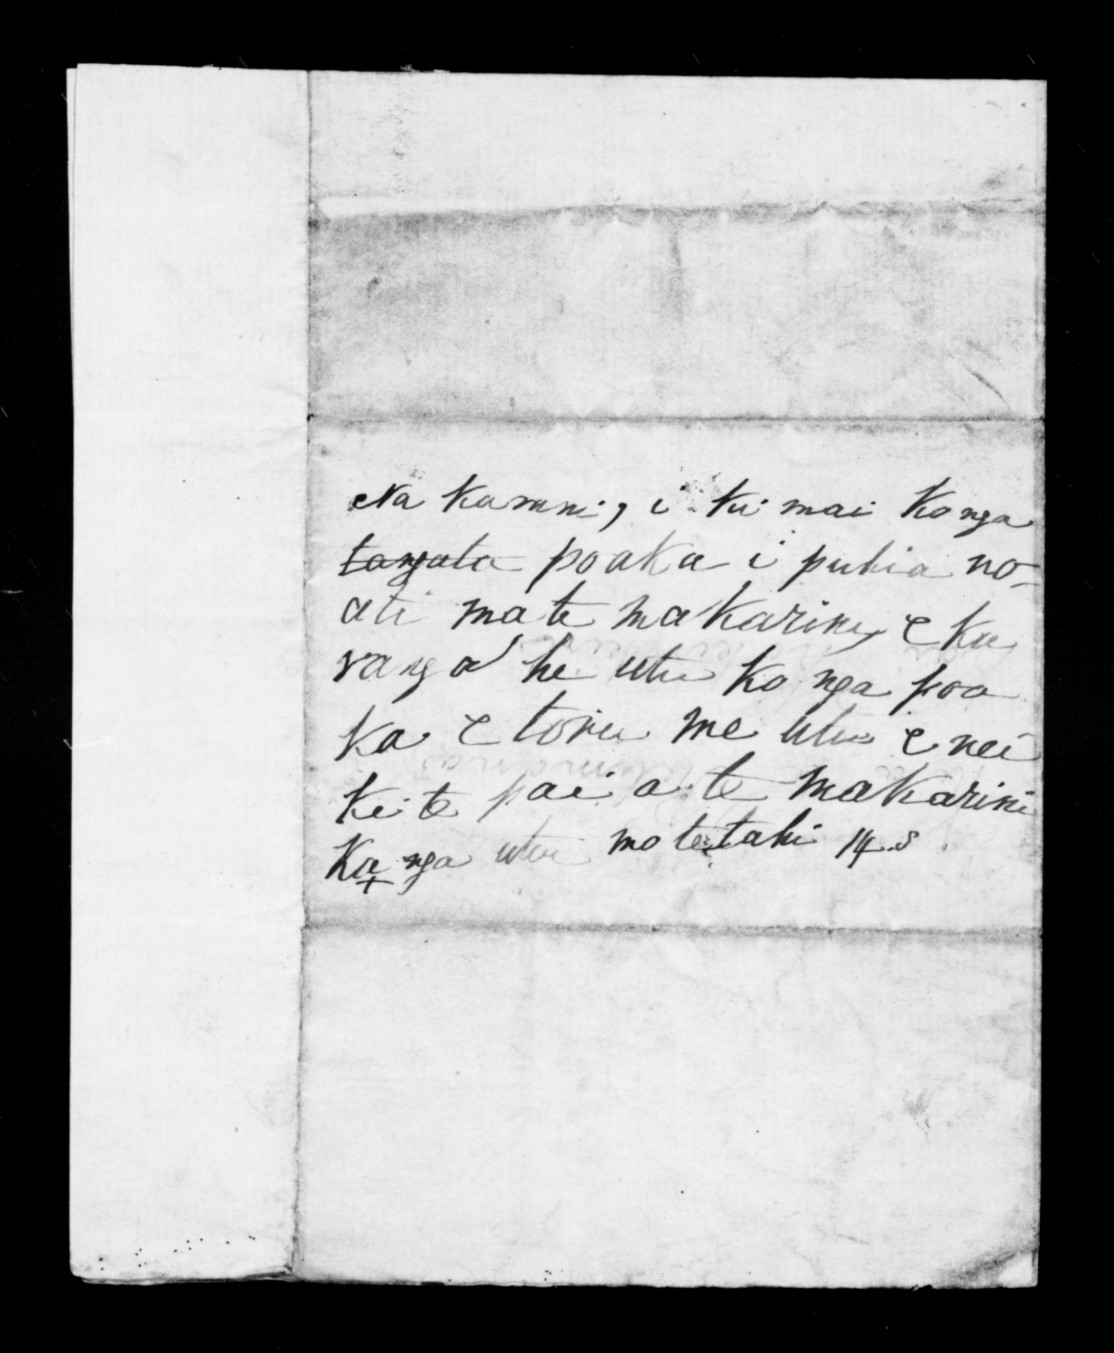 Na karauni, i ki mai ko nga
tangata poaka i puhia no-
ati ma te makarini, e ka
ranga he utu ko nga poa
ka e toru me utu e nei
ki te pai a te makarini
Ka nga utu mo te tahi 14.s.